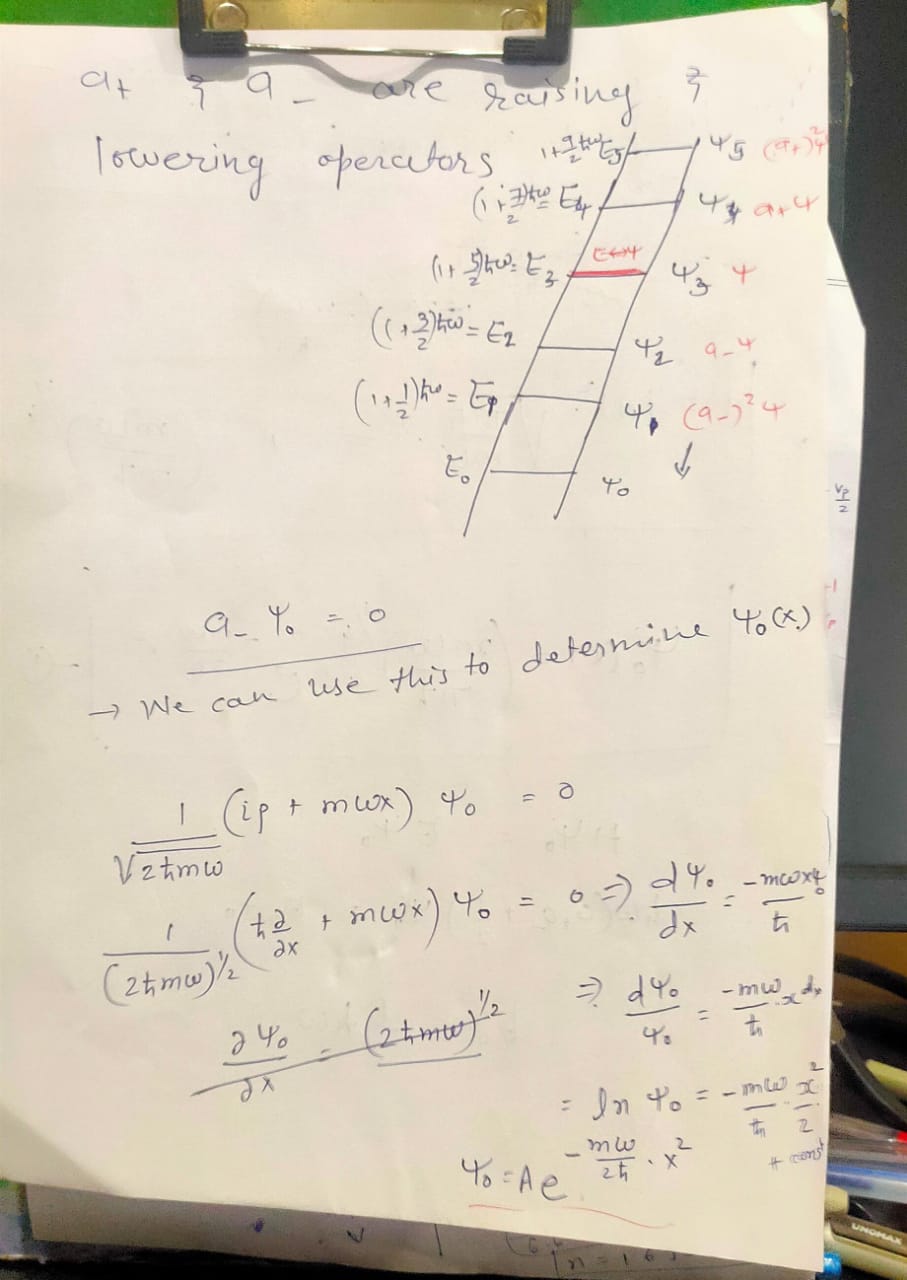 a+ & a- are raising &
lowering operators
1+9/2ħω E5 ψ5 (a+)²ψ
(1+7/2)ħω = E4 ψ4 a+ψ
(1+5/2)ħω = E3 E↔ψ ψ3 ψ
(1+3/2)ħω = E2 ψ2 a-ψ
(1+1/2)ħω = E1 ψ1 (a-)²ψ
E0 ψ0 ↓
a- ψ0 = 0
→ We can use this to determine ψ0(x)
1/√2ħmω (ip + mωx) ψ0 = 0
1/(2ħmω)^1/2 (ħ∂/∂x + mωx) ψ0 = 0 ⇒ dψ0/dx = -mωxψ0/ħ
∂ψ0/∂x = (2ħmω)^1/2 ⇒ dψ0/ψ0 = -mω/ħ · x dx
= ln ψ0 = -mω/ħ · x²/2 + const
ψ0 = A e^-mω/2ħ · x²
Vp/2
UNOMAX